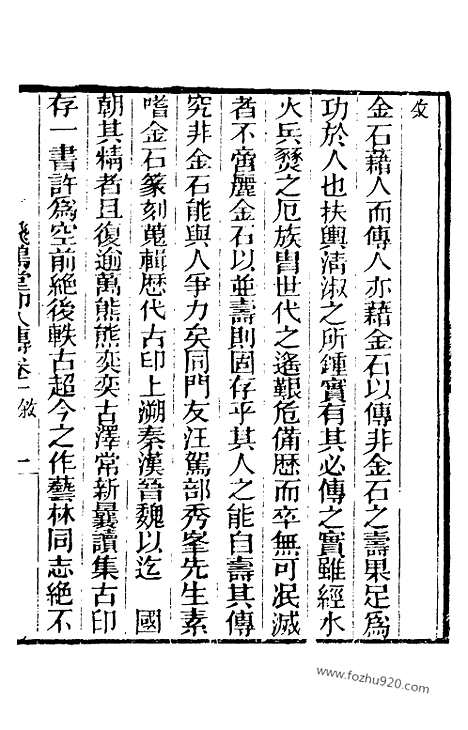 敘
金石藉人而傳人亦藉金石以傳非金石之壽果足爲
功於人也扶輿清淑之所鍾實有其必傳之實雖經水
火兵燹之厄族胄世代之遙艱危備歷而卒無可泯滅
者不啻麗金石以並壽則固存乎其人之能自壽其傳
究非金石能與人爭力矣同門友汪駕部秀峯先生素
嗜金石篆刻蒐輯歷代古印上溯秦漢晉魏以迄 國
朝其精者且復逾萬熊熊奕奕古澤常新曩讀集古印
存一書許爲空前絶後軼古超今之作藝林同志絶不
飛鴻堂印人傳卷一敘 一
www.fozhu920.com